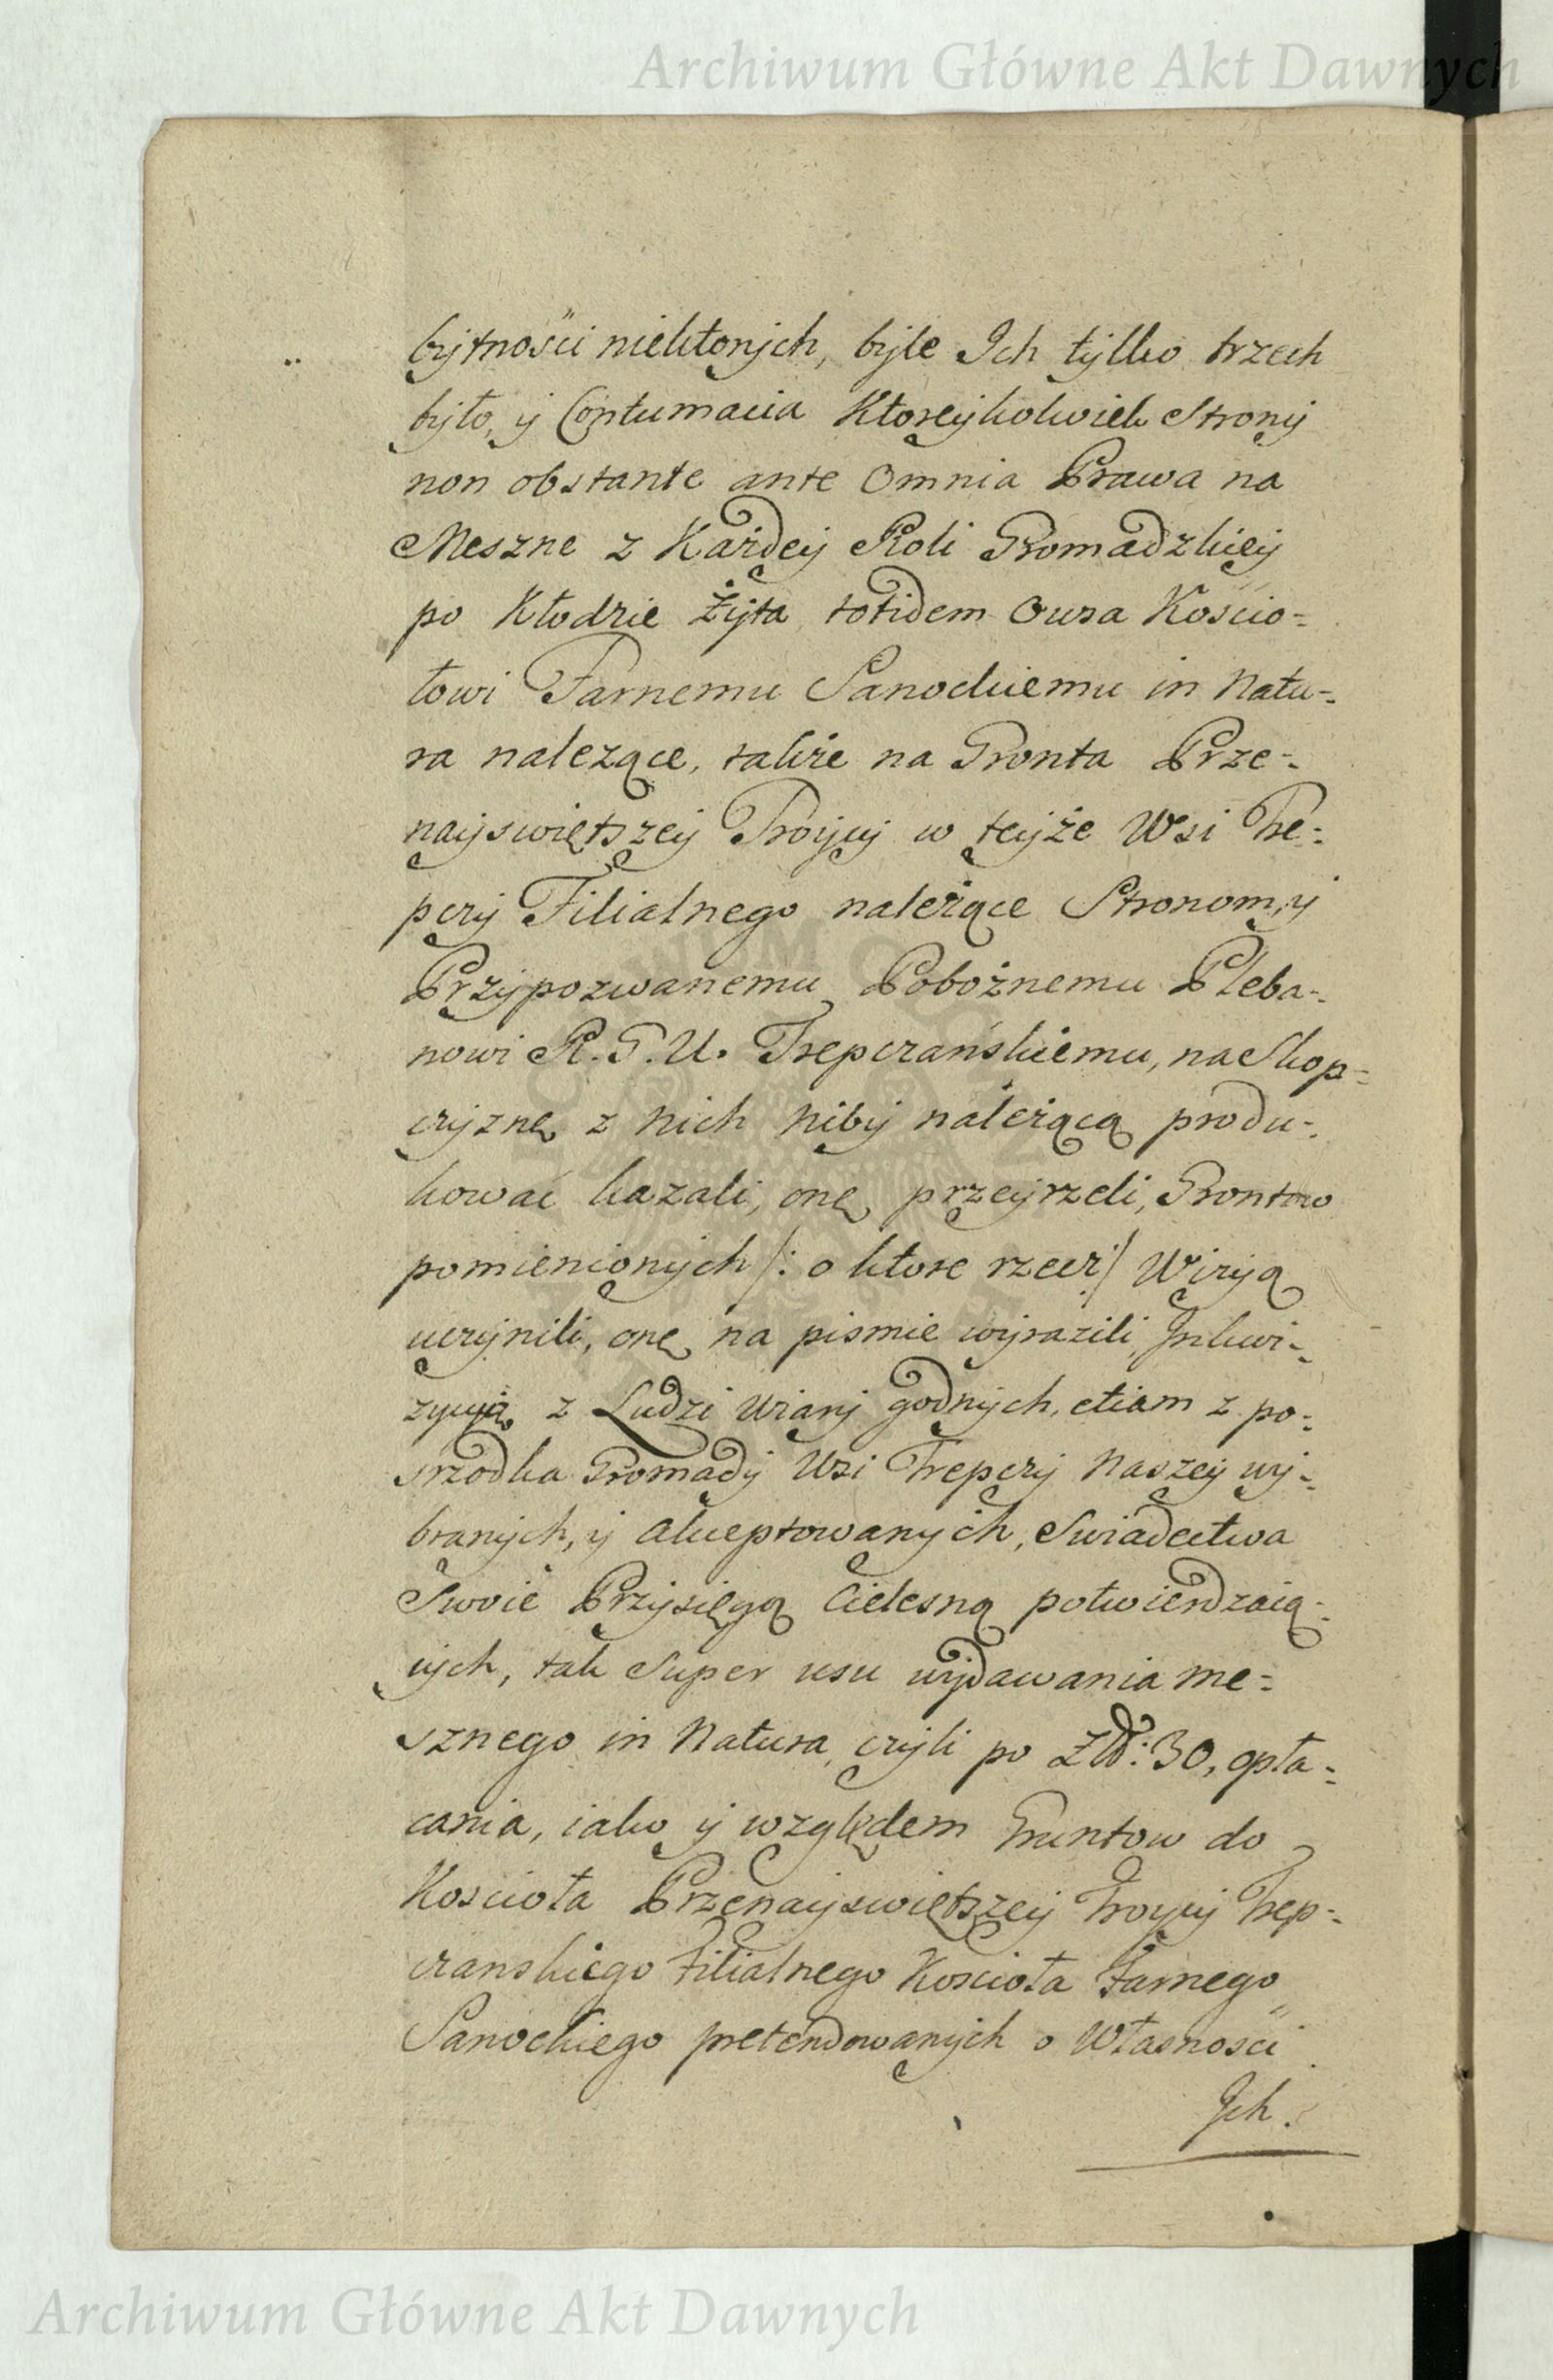 Archiwum Główne Akt Dawnych
bytności niektorych, byle Ich tylko trzech
było, y Contumacia Ktoreykolwiek Strony
non obstante ante Omnia Prawa na
Meszne z Każdey Roli Gromadzkiey
po Kłodzie Żyta totidem Owsa Kościo=
łowi Farnemu Sanockiemu in Natu=
ra nalezące, także na Gronta Prze=
nayswiętszey Troycy w teyże Wsi Tre=
pczy Filialnego należące Stronom, y
Przypozwanemu Pobożnemu Pleba=
nowi R. G. U. Trepczańskiemu, na Skop=
czyznę z nich niby należącą produ=
kować kazali, onę przeyrzeli, Grontow
pomienionych /: o ktore rzecz :/ Wizyą
uczynili, onę na pismie wyrazili, Inkwi=
zycyą z Ludzi wiary godnych, etiam z po=
srzodka Gromady Wsi Trepczy Naszey wy=
branych, y akceptowanych, Swiadectwa
Swoie Przysięgą Cielesną potwierdzaią=
cych, tak Super usu wydawania me=
sznego in Natura, czyli po Złł: 30, opła=
cania, iako y względem Gruntow do
Kosciola Przenayswiętszey Troycy Trep=
czanskiego Filialnego Kosciola Farnego
Sanockiego pretendowanych o Własności
Ich.
Archiwum Główne Akt Dawnych